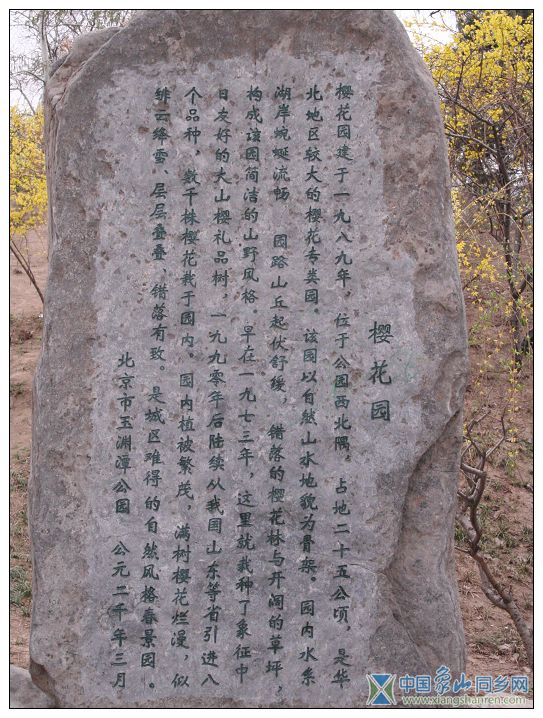 樱花园
樱花园建于一九八九年，位于公园西北隅。占地二十五公顷，是华
北地区较大的樱花专类园。该园以自然山水地貌为骨架。园内水系
湖岸蜿蜒流畅　园路山丘起伏舒缓，错落的樱花林与开阔的草坪，
构成该园简洁的山野风格。早在一九七三年，这里就栽种了象征中
日友好的大山樱礼品树，一九九零年后陆续从我国山东等省引进八
个品种，数千株樱花栽于园内。园内植被繁茂，满树樱花烂漫，似
绯云绛雪、层层叠叠、错落有致。是城区难得的自然风格春景园。
北京市玉渊潭公园　公元二千年三月
中国象山同乡网
www.xiangshanren.com